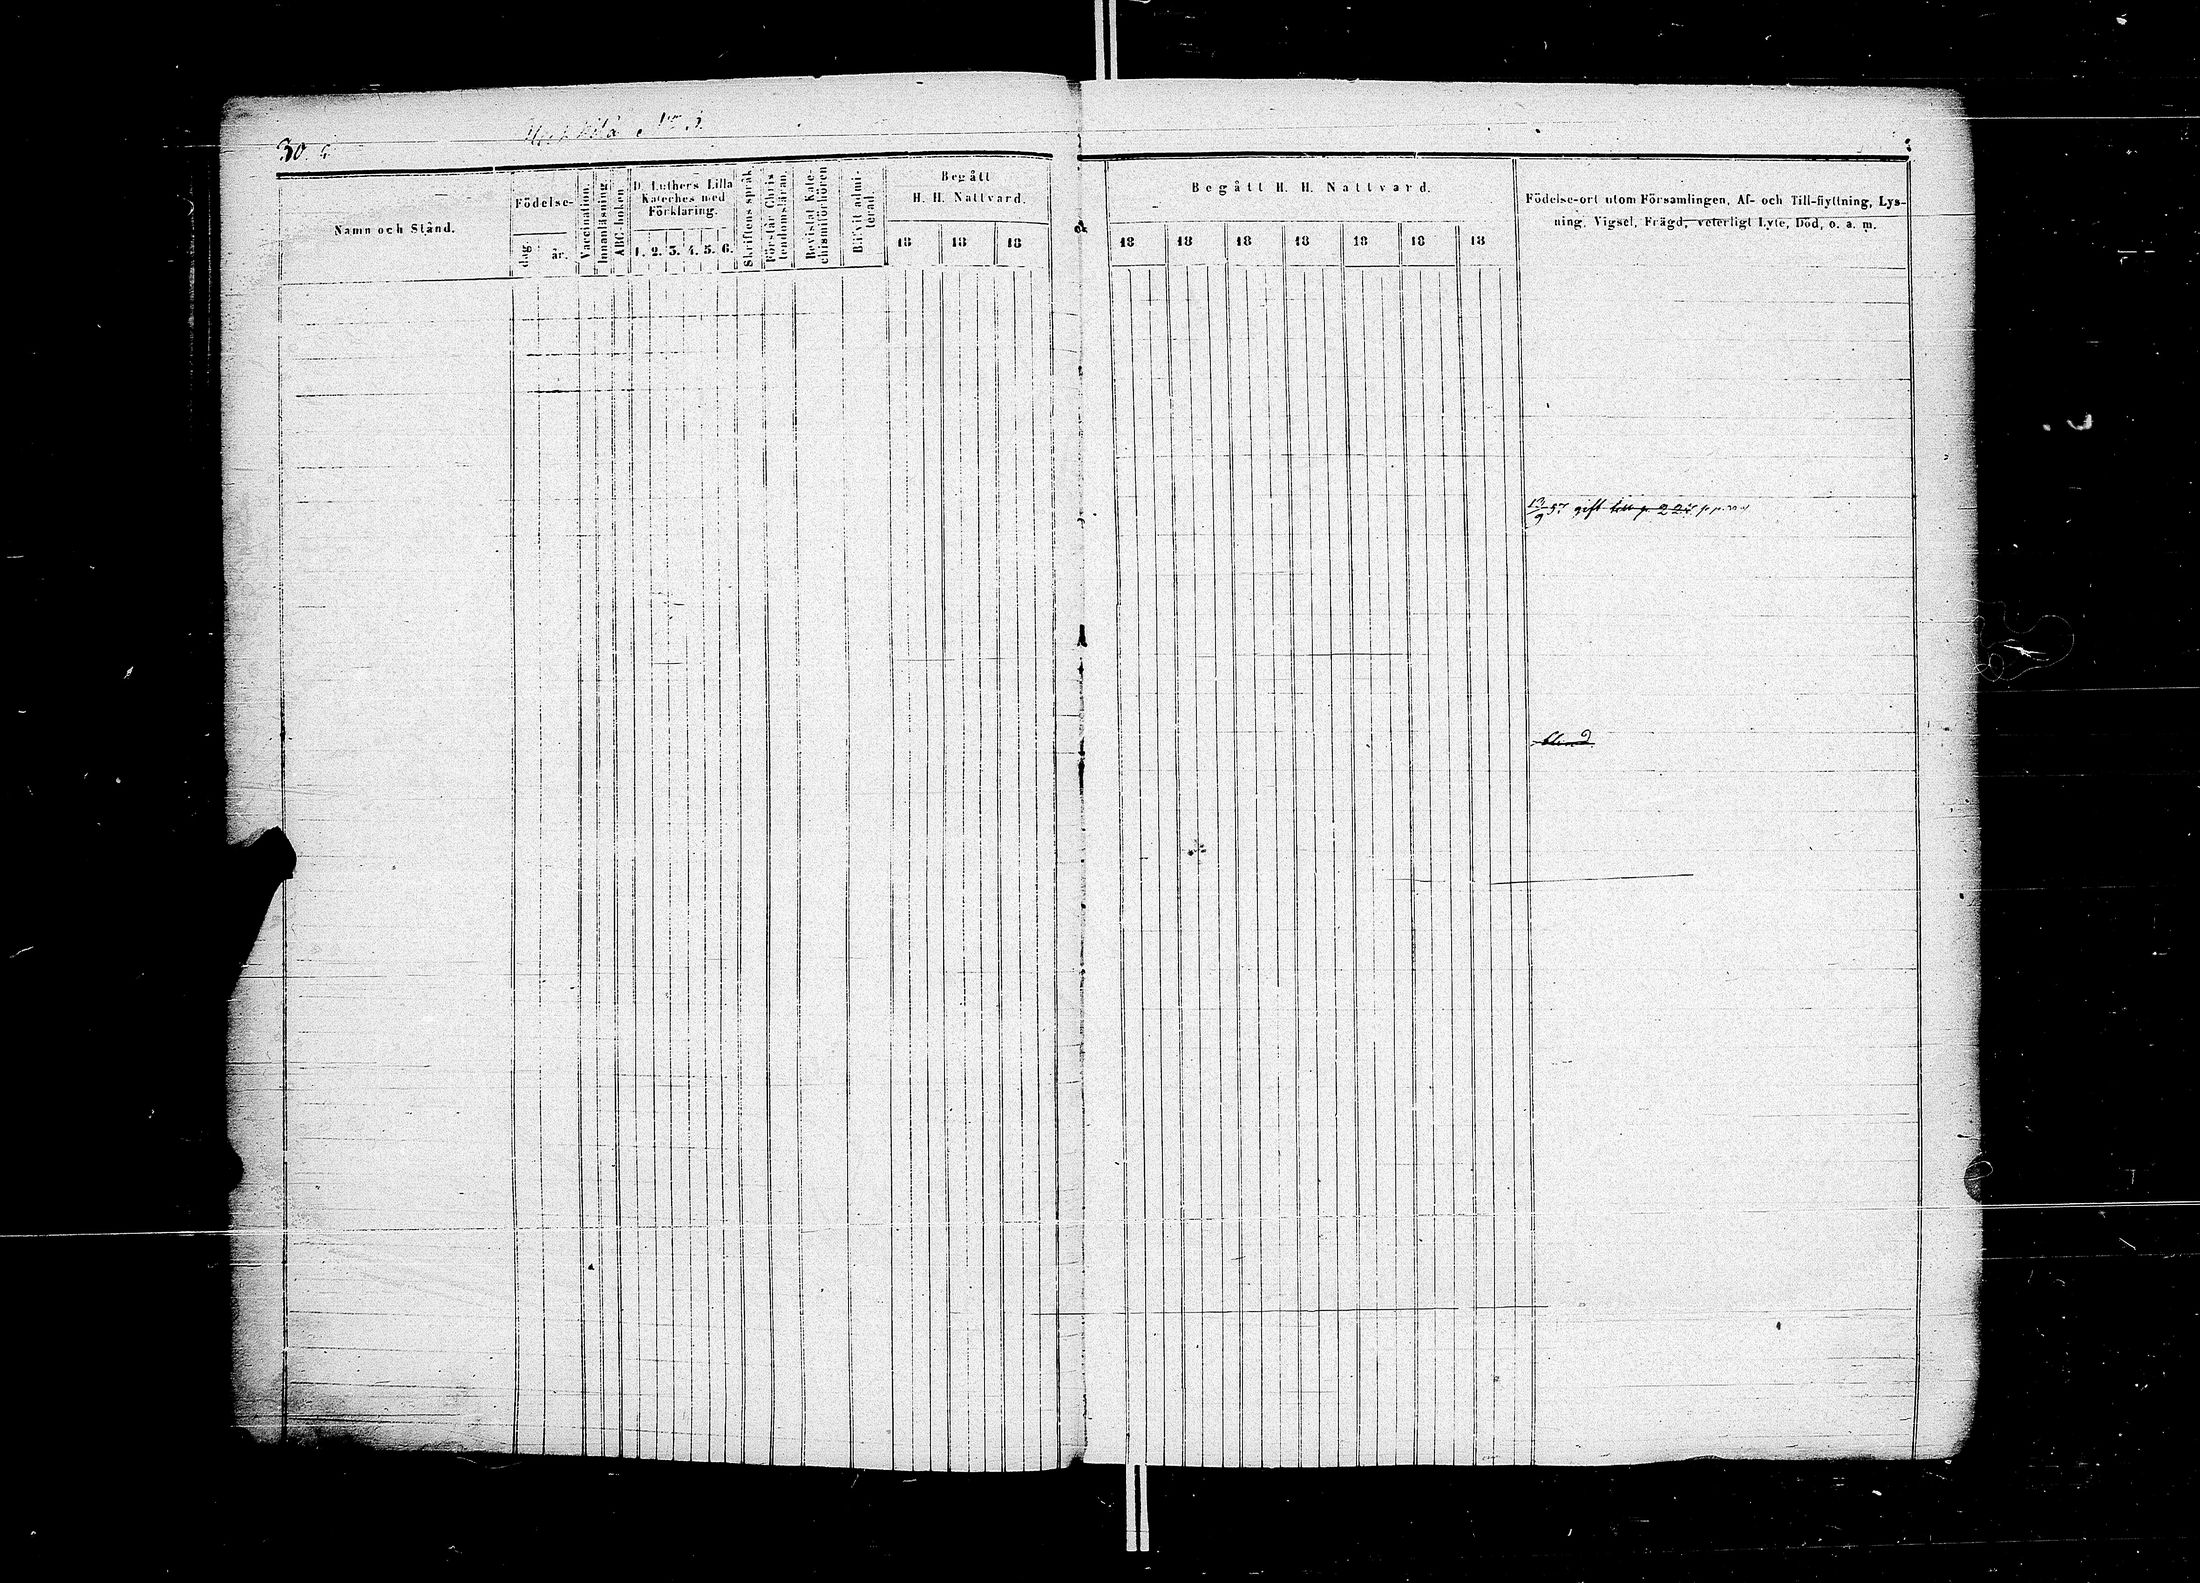 30.
No 3.
Namn och Stånd.
Födelse-
dag
år.
Vaccination.
Innanläsning.
ABC-boken
D. Luthers Lilla
Kateches med
Förklaring.
1. 2. 3. 4. 5. 6.
Skriftens språk.
Förstår Chris
tendomsläran.
Bevistat Kate-
chismiförhören
Blifvit admi-
terad.
Begått
H. H. Nattvard.
18 18 18
Begått H. H. Nattvard.
18 18 18 18 18 18 18
Födelse-ort utom Församlingen, Af- och Till-flyttning, Lys-
ning, Vigsel, Frägd, veterligt Lyte, Död, o. a. m.
13/9 57 gift till p. 225
blind